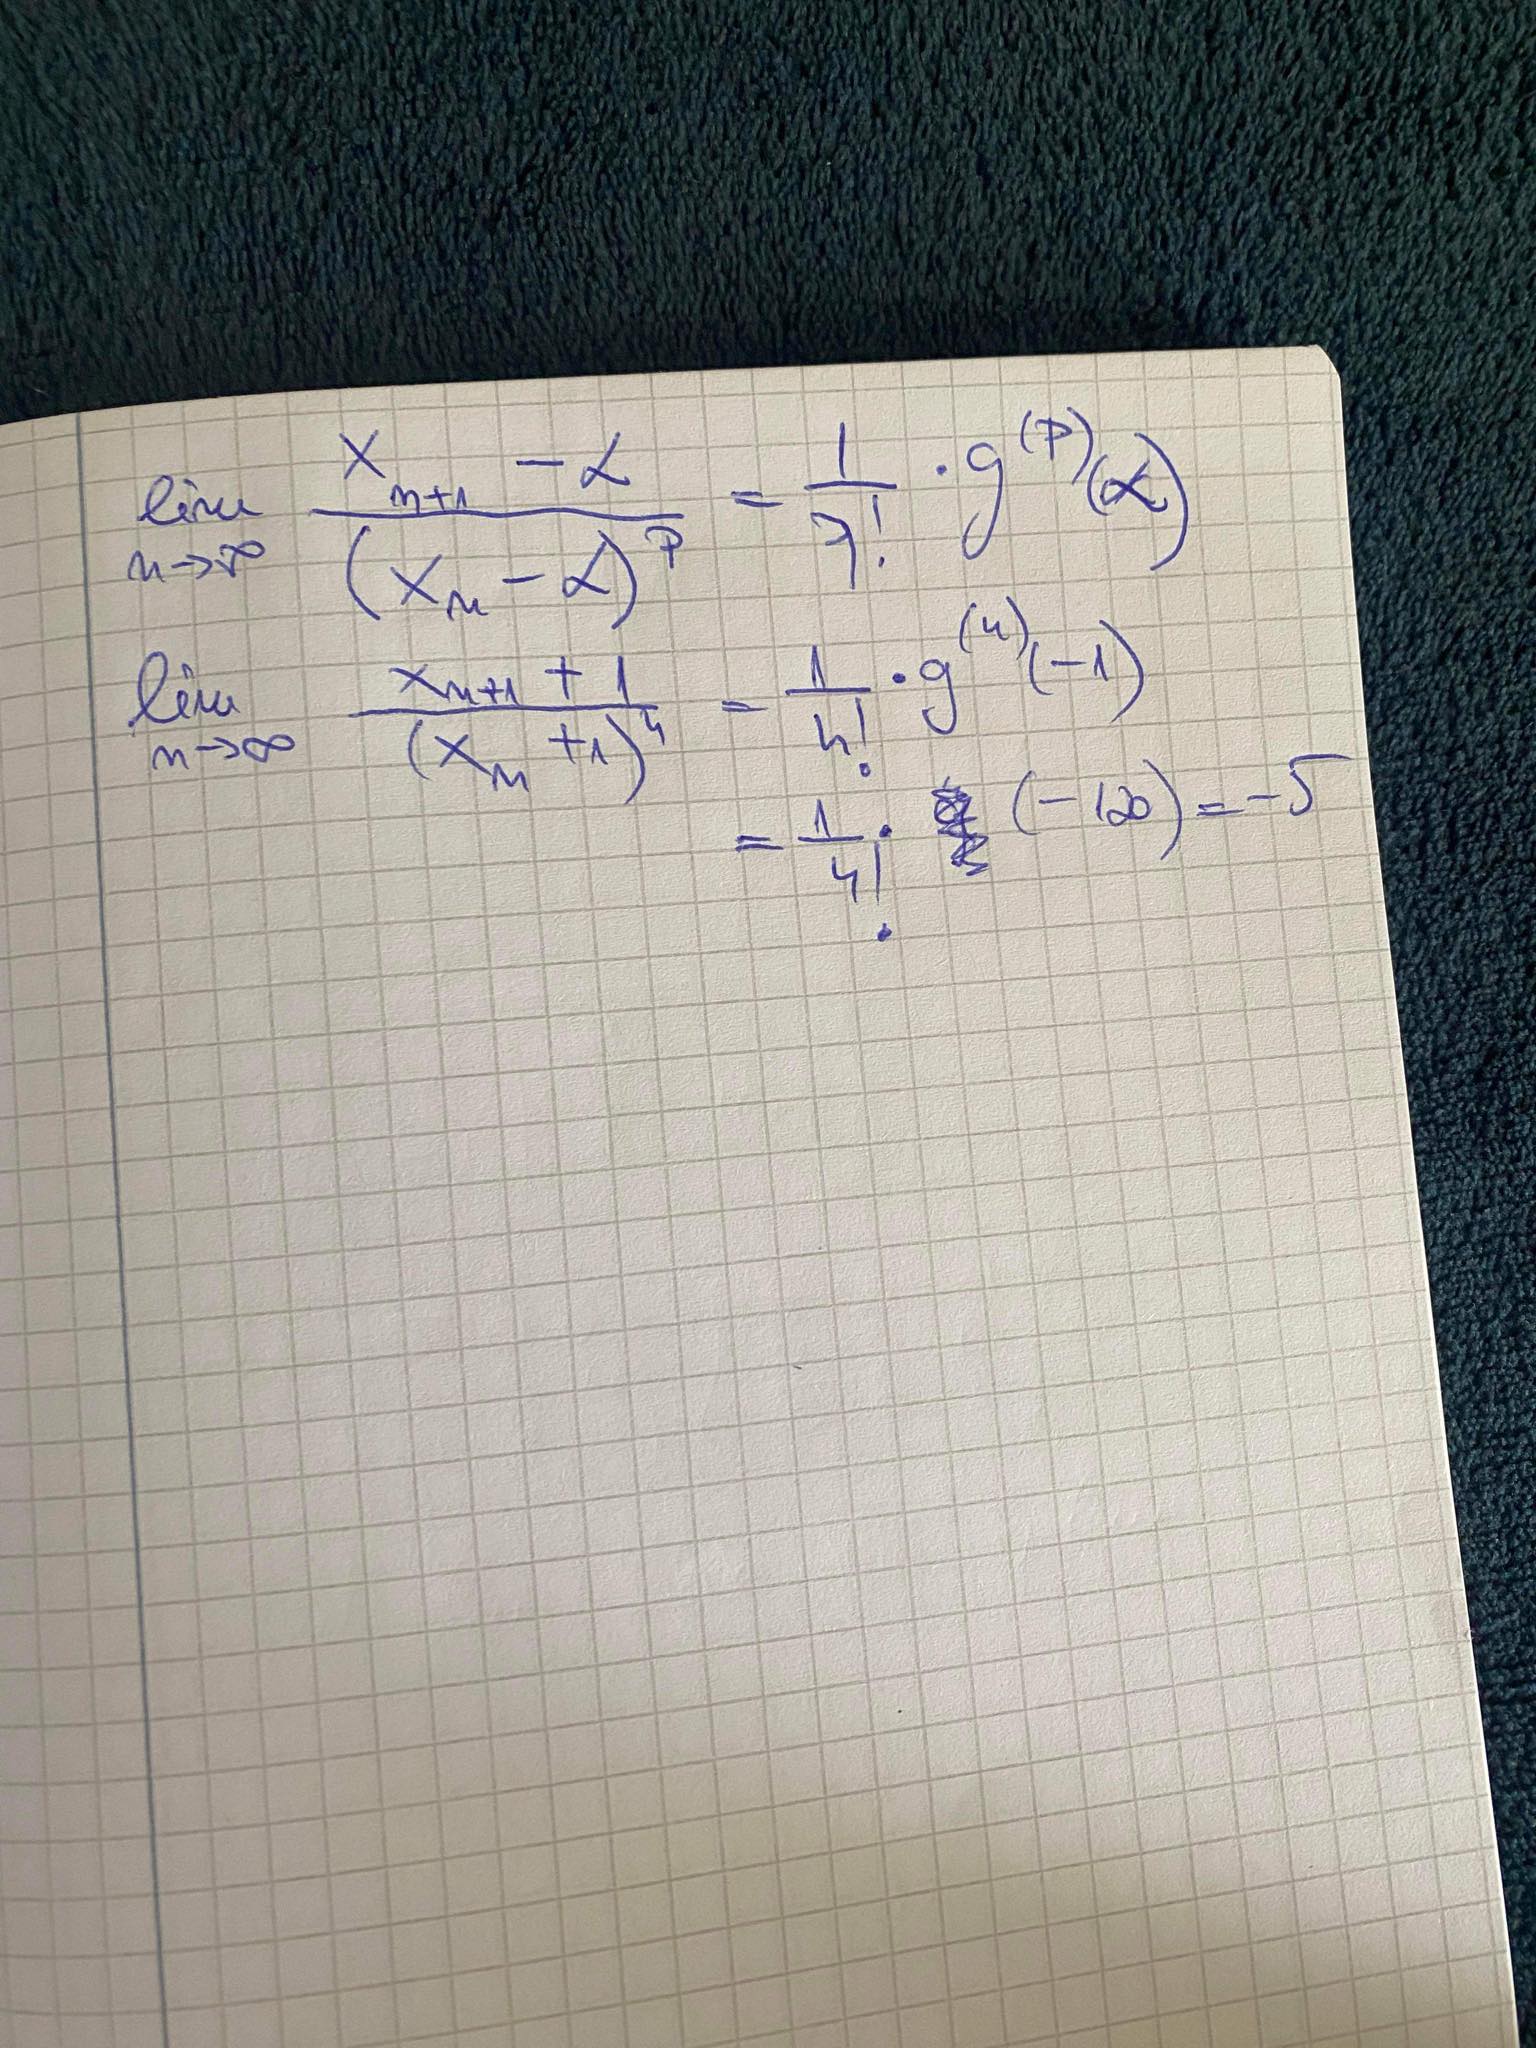 lim n→∞ (x_{n+1} - α) / (x_n - α)^p = 1/p! · g^{(p)}(α)
lim n→∞ (x_{n+1} + 1) / (x_n + 1)^4 = 1/4! · g^{(4)}(-1)
= 1/4! · (-120) = -5